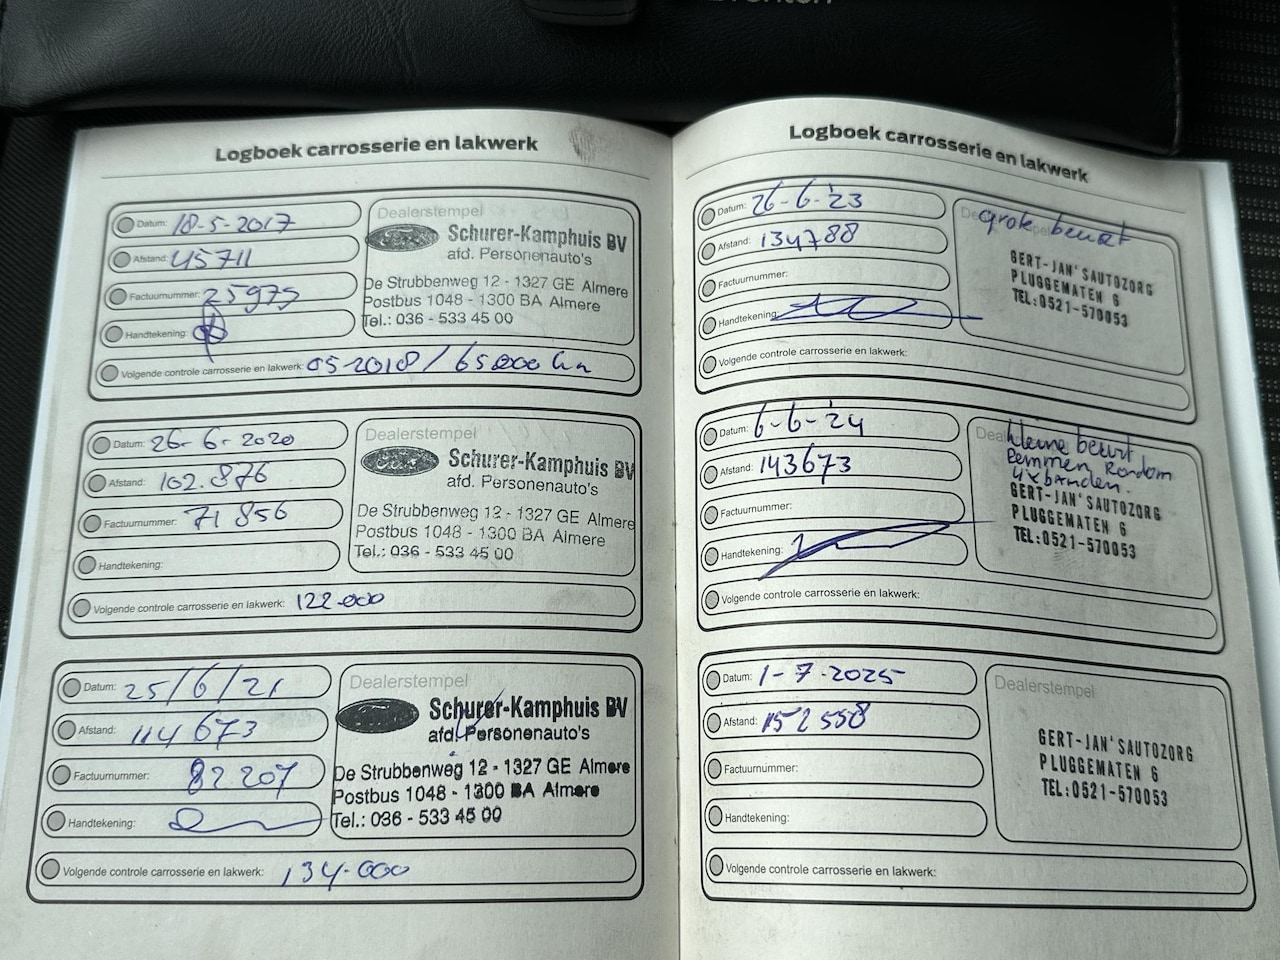 Logboek carrosserie en lakwerk
Datum: 18-5-2017
Afstand: 45711
Factuurnummer: 25975
Handtekening:
Volgende controle carrosserie en lakwerk: 05-2018 / 65.000 km
Dealerstempel
Schurer-Kamphuis BV
afd. Personenauto's
De Strubbenweg 12 - 1327 GE Almere
Postbus 1048 - 1300 BA Almere
Tel.: 036 - 533 45 00
Datum: 26-6-2020
Afstand: 102.876
Factuurnummer: 71856
Handtekening:
Volgende controle carrosserie en lakwerk: 122.000
Dealerstempel
Schurer-Kamphuis BV
afd. Personenauto's
De Strubbenweg 12 - 1327 GE Almere
Postbus 1048 - 1300 BA Almere
Tel.: 036 - 533 45 00
Datum: 25/6/21
Afstand: 114673
Factuurnummer: 82207
Handtekening:
Volgende controle carrosserie en lakwerk: 134.000
Dealerstempel
Schurer-Kamphuis BV
afd. Personenauto's
De Strubbenweg 12 - 1327 GE Almere
Postbus 1048 - 1300 BA Almere
Tel.: 036 - 533 45 00
Logboek carrosserie en lakwerk
Datum: 26-6-'23
Afstand: 134788
Factuurnummer:
Handtekening:
Volgende controle carrosserie en lakwerk:
grote beurt
GERT-JAN'SAUTOZORG
PLUGGEMATEN 6
TEL:0521-570053
Datum: 6-6-'24
Afstand: 143673
Factuurnummer:
Handtekening:
Volgende controle carrosserie en lakwerk:
kleine beurt
Remmen Rondom
4x banden.
GERT-JAN'SAUTOZORG
PLUGGEMATEN 6
TEL:0521-570053
Datum: 1-7-2025
Afstand: 152558
Factuurnummer:
Handtekening:
Volgende controle carrosserie en lakwerk:
Dealerstempel
GERT-JAN'SAUTOZORG
PLUGGEMATEN 6
TEL:0521-570053